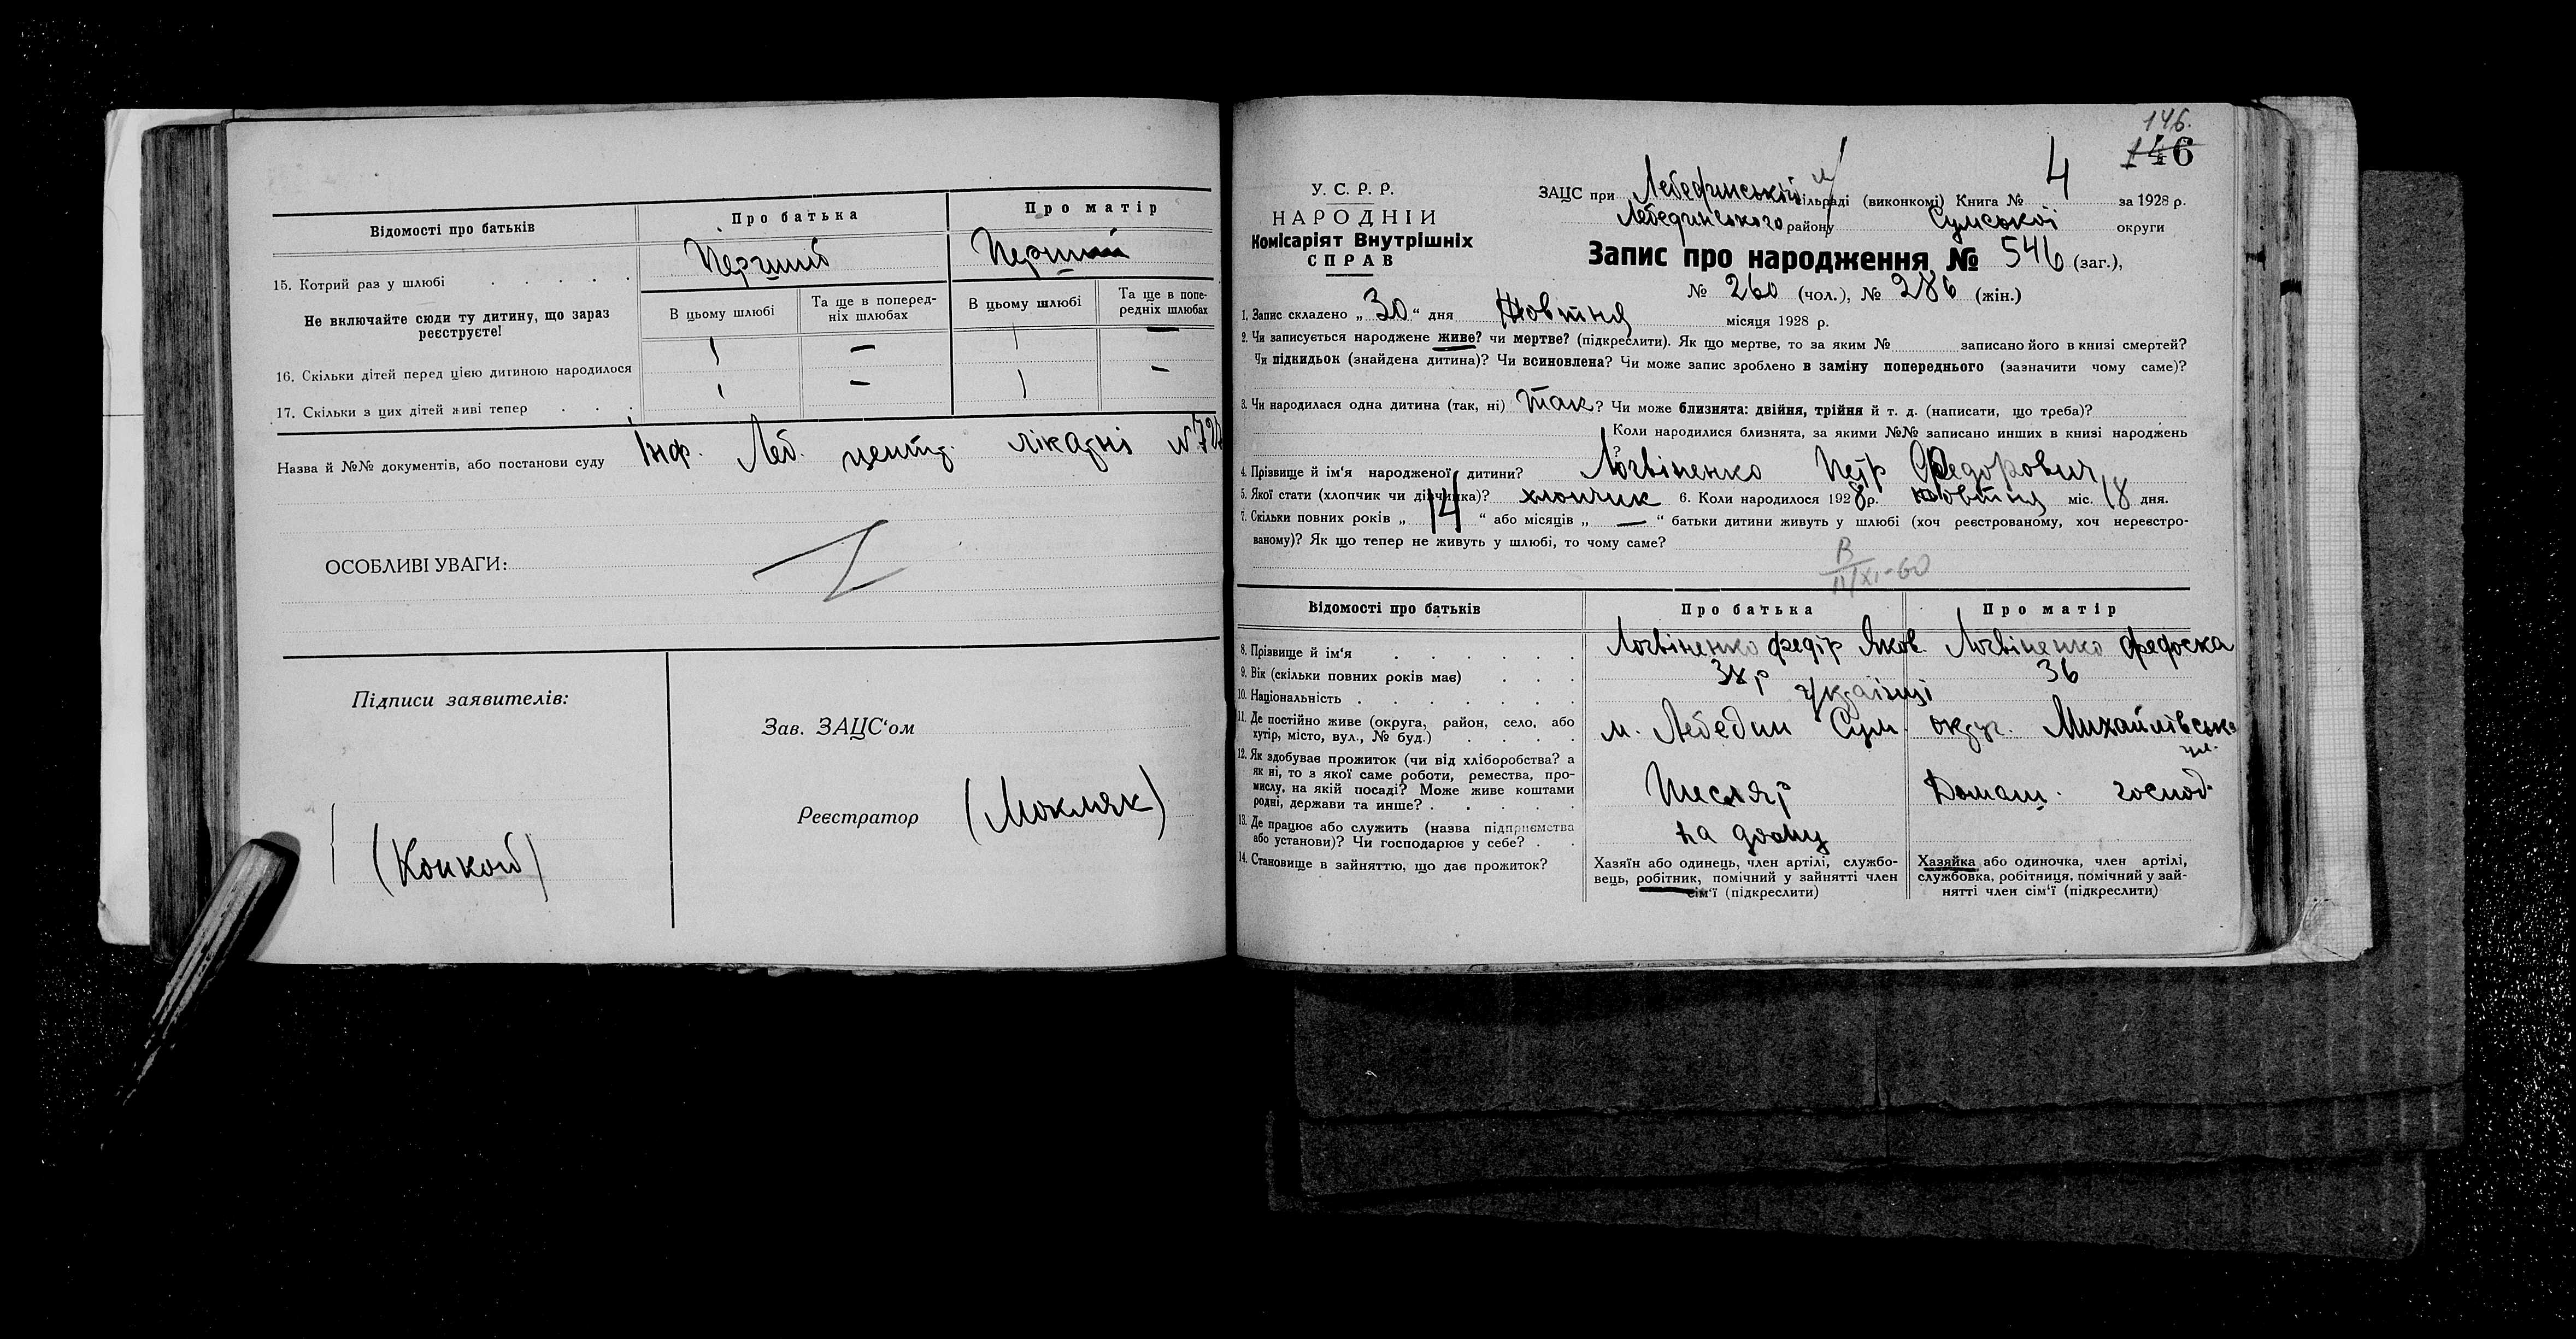 Відомості про батьків
Про батька
Про матір
15. Котрий раз у шлюбі
Перший
Перший
Не включайте сюди ту дитину, що зараз реєструєте!
В цьому шлюбі
Та ще в поперед-
ніх шлюбах
В цьому шлюбі
Та ще в попе-
редніх шлюбах
16. Скільки дітей перед цією дитиною народилося
1 — 1 —
17. Скільки з цих дітей живі тепер
1 — 1 —
Назва й №№ документів, або постанови суду Інф. Леб. центр. лікарні
ОСОБЛИВІ УВАГИ:
Підписи заявителів:
Зав. ЗАЦС‘ом
Реєстратор (Мокляк)
146.
146
У. С. Р. Р.
НАРОДНІЙ
Комісаріят Внутрішніх
СПРАВ
ЗАЦС при Лебединській м/ сільраді (виконкомі) Книга № 4 за 1928 р.
Лебединського району Сумської округи
Запис про народження № 546 (заг.),
№ 260 (чол.), № 286 (жін.)
1. Запис складено „ 30 “ дня Жовтня місяця 1928 р.
2. Чи записується народжене живе? чи мертве? (підкреслити). Як що мертве, то за яким № записано його в книзі смертей?
Чи підкидьок (знайдена дитина)? Чи всиновлена? Чи може запис зроблено в заміну попереднього (зазначити чому саме)?
3. Чи народилася одна дитина (так, ні) Так ? Чи може близнята: двійня, трійня й т. д. (написати, що треба)?
Коли народилися близнята, за якими №№ записано инших в книзі народжень
?
4. Прізвище й ім‘я народженої дитини? Логвіненко Петр Федорович
5. Якої стати (хлопчик чи дівчинка)? хлопчик 6. Коли народилося 1928 р. жовтня міс. 18 дня.
7. Скільки повних років „ 14 “ або місяців „ — “ батьки дитини живуть у шлюбі (хоч реєстрованому, хоч нереєстро-
ваному)? Як що тепер не живуть у шлюбі, то чому саме?
В
11/XI-60
Відомості про батьків
Про батька
Про матір
8. Прізвище й ім‘я
Логвіненко Федір Яков.
Логвіненко Федоска
9. Вік (скільки повних років має)
36
10. Національність
Українці
11. Де постійно живе (округа, район, село, або
хутір, місто, вул., № буд.)
м. Лебедин Сум. округ. Михайлівська
вул.
12. Як здобуває прожиток (чи від хліборобства? а
як ні, то з якої саме роботи, ремества, про-
мислу, на якій посаді? Може живе коштами
родні, держави та инше?
Тесляр
Домаш. господ.
13. Де працює або служить (назва підприємства
або установи)? Чи господарює у себе?
на дому
14. Становище в зайняттю, що дає прожиток?
Хазяїн або одинець, член артілі, службо-
вець, робітник, помічний у зайнятті член
сім‘ї (підкреслити)
Хазяйка або одиночка, член артілі,
службовка, робітниця, помічний у зай-
нятті член сім‘ї (підкреслити)